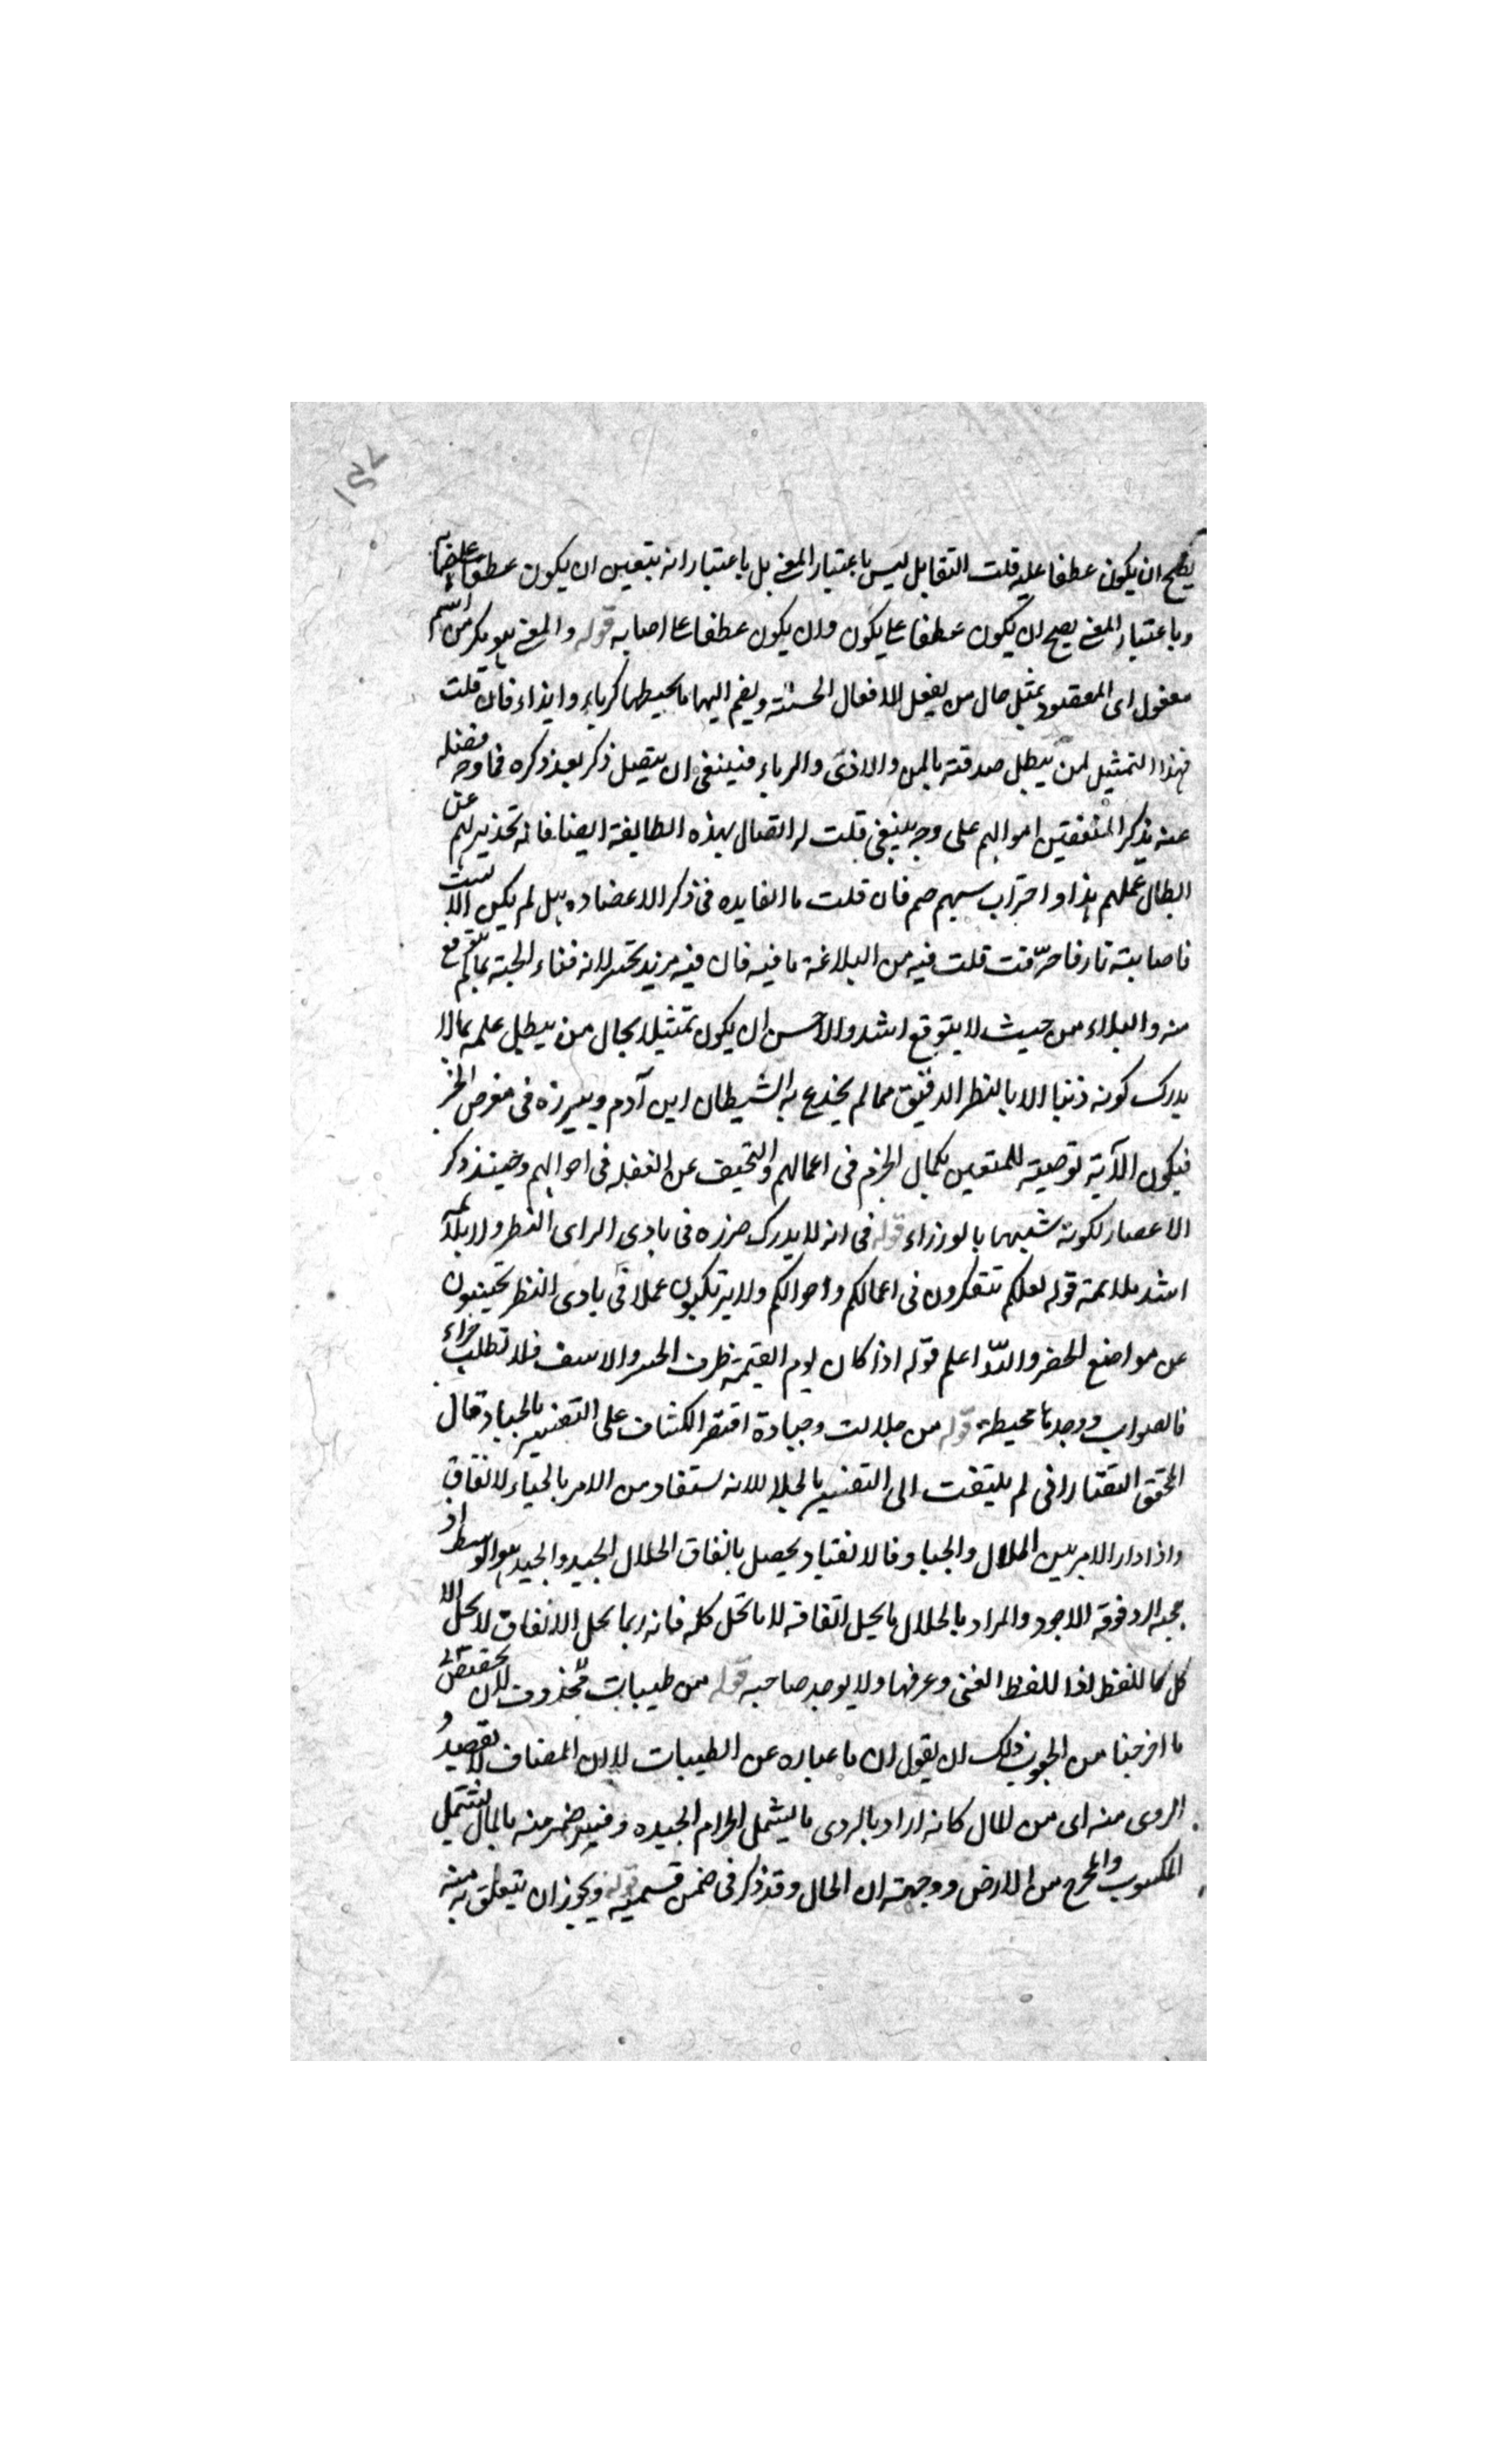 ١٥٧
يصح ان يكون عطفا عليه قلت التقابل ليس باعتبار المعنى بل باعتبار انه يتعين ان يكون عطفا على اصابه
وباعتبار المعنى يصح ان يكون عطفا على يكون وان يكون عطفا على اصابه قوله والمعنى
مفعول اى المقصود تمثيل حال من يفعل الافعال الحسنة ويضم اليها ما يحبطها كرياء وايذاء فان قلت
فهذا التمثيل لمن يبطل صدقته بالمن والاذى والرياء فينبغى ان يتصل ذكر بعد ذكره فما وجه فصله
عنه بذكر المنفقين اموالهم على وجه ينبغى قلت له اتصال بهذه الطايفة ايضا فانه تحذير لهم عن
ابطال عملهم هذا فان قلت ما الفايده فى ذكر الاعصار
فاصابته نار فاحترقت قلت فيه من البلاغة ما فيه فان فيه مزيد تحسر لانه فناء الجنة بما لم يتوقع
منه والبلاء من حيث لا يتوقع اشد والاحسن ان يكون تمثيلا بحال من يبطل عمله بما لا
يدرك كونه ذنبا الا بالنظر الدقيق مما لم يخدع به الشيطان ابن آدم ويبرزه فى معرض الخير
فيكون الآية توصية للمتقين بكمال الحزم فى اعمالهم عن الغفله فى احوالهم وحينئذ ذكر
الاعصار لكونه شبيها قوله فى انه لا يدرك ضرره فى بادى الراى النظر ولا يلايمه
اشد ملايمة قوله لعلكم تتفكرون فى اعمالكم واحوالكم ولا يرتكبون عملا فى بادى النظر
عن مواضع الحضر والله اعلم قوله اذا كان يوم القيمة ظرف الحسر والاسف فلا تطلب جزاء
فالصواب ووجدها محبطة قوله من حلاله وجياده اقتصر الكشاف على التفسير بالجياد قال
المحقق التفتازانى لم يلتفت الى التفسير بالحلال لانه يستفاد من الامر بالانفاق
واذا دار الامر بين الحلال والجياد فالانقياد يحصل بانفاق الحلال الجيد والجيد هو الوسط اذ
فوقه الاجود والمراد بالحلال ما يحل انفاقه لا ما تحل كله فانه ربما يحل الانفاق لا يحل الا
كل ولا يوجد صاحبه قوله من طيبات
ما اخرجنا من الحبوب ولك ان يقول ان ما عباره عن الطيبات لا ان المضاف لا تقصدوا
الردى منه اى من المال كانه اراد بالردى ما يشمل الحرام الجيده وفسر ضمير منه بالمال ليشتمل
المكسوب والمخرج من الارض ووجهه ان المال وقد ذكر فى ضمن قسميه قوله ويجوز ان يتعلق به منه